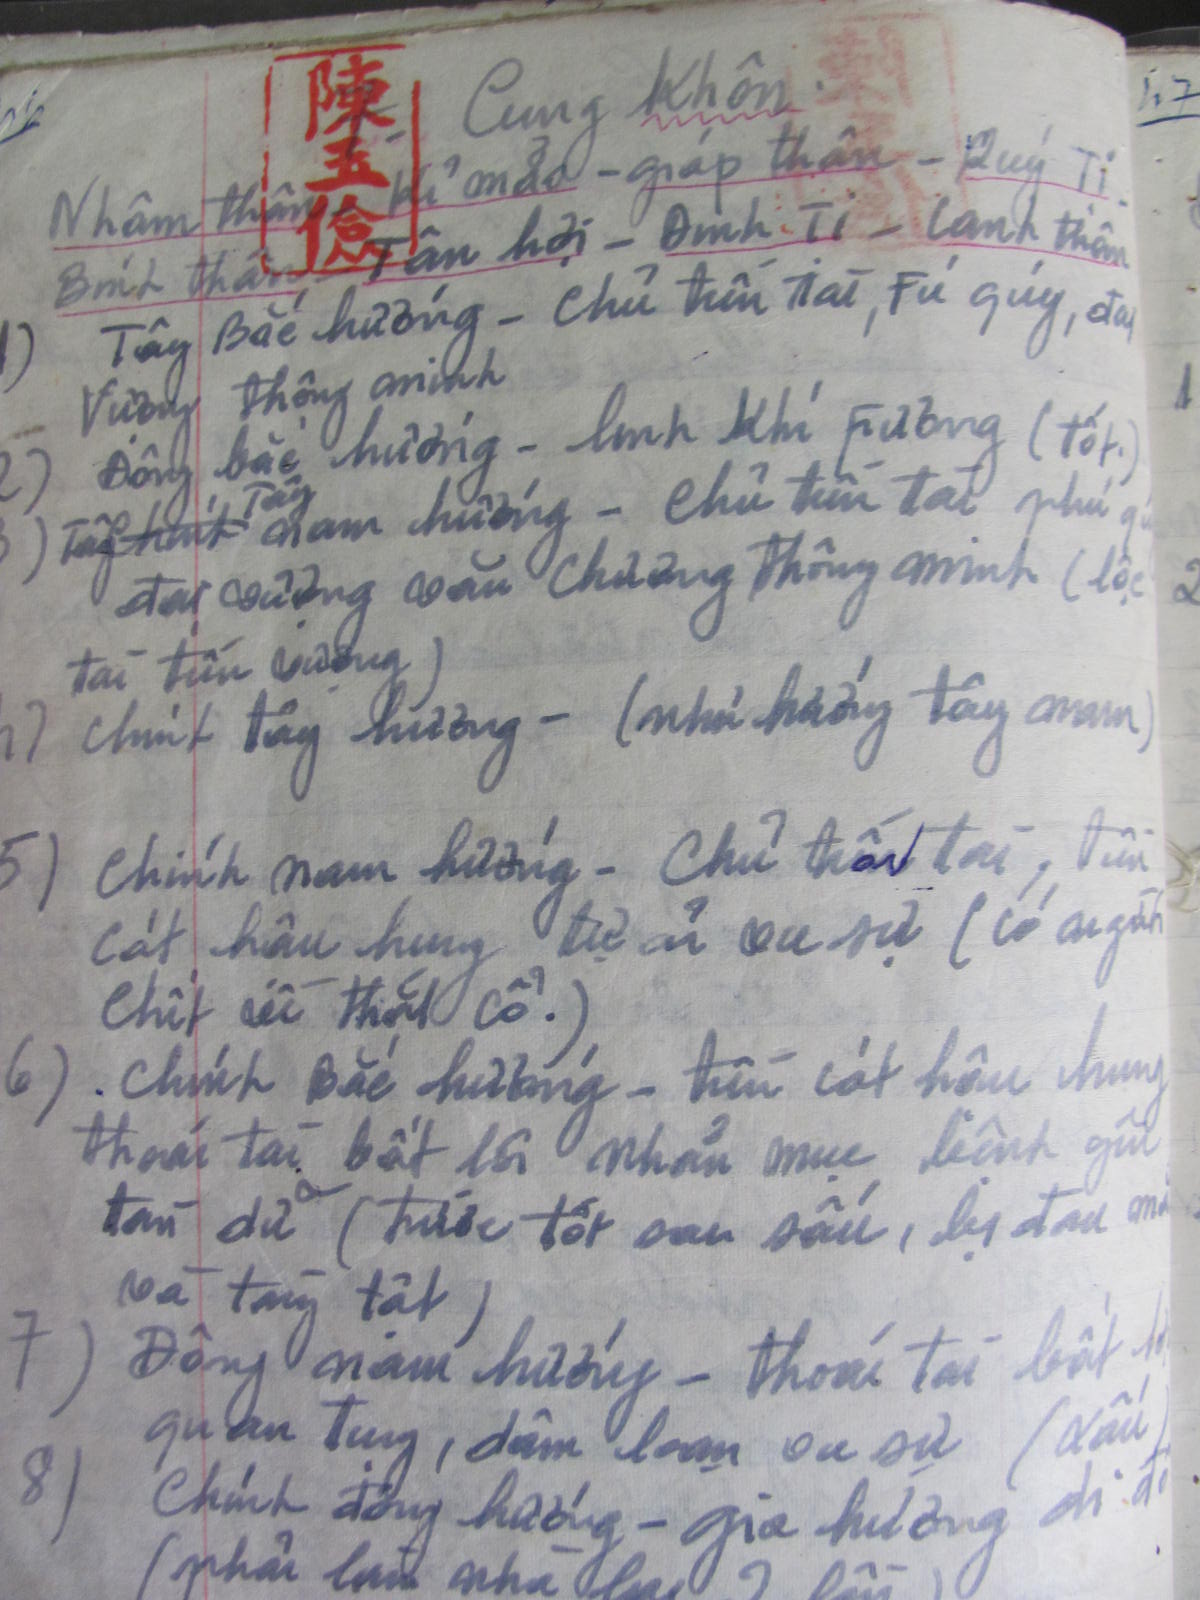 陳玉儉
Cung Khôn.
Nhâm thân - Kỉ mão - giáp thân - Quý Tỉ -
Bính thân - Tân hợi - Đinh Tỉ - Canh thân
1) Tây Bắc hướng - Chủ tiến tài, Fú qúy, đại
Vượng thông minh
2) Đông bắc hướng - linh khí Fương (tốt.)
Tây
3) Tây nam hướng - Chủ tiến tài phú qú
đại vượng văn Chương thông minh (lộc
tài tiến vượng)
Chính tây hướng - (như hướng tây nam)
5) Chính nam hướng - Chủ thoái tài, tiền
cát hậu hung tự ải vu sự (có người
Chết vì thắt cổ.)
6) . Chính Bắc hướng - tiền cát hậu hung
thoái tài bất lợi nhãn mục bệnh gữi
tàn dữ (trước tốt sau sấu, bị đau mắ
và tàng tật)
7) Đông nam hướng - thoái tài bất lợ
quan tụng, dâm loạn vu sự (xấu)
8) Chính đông hướng - gia hương di đ
(phải làm nhà